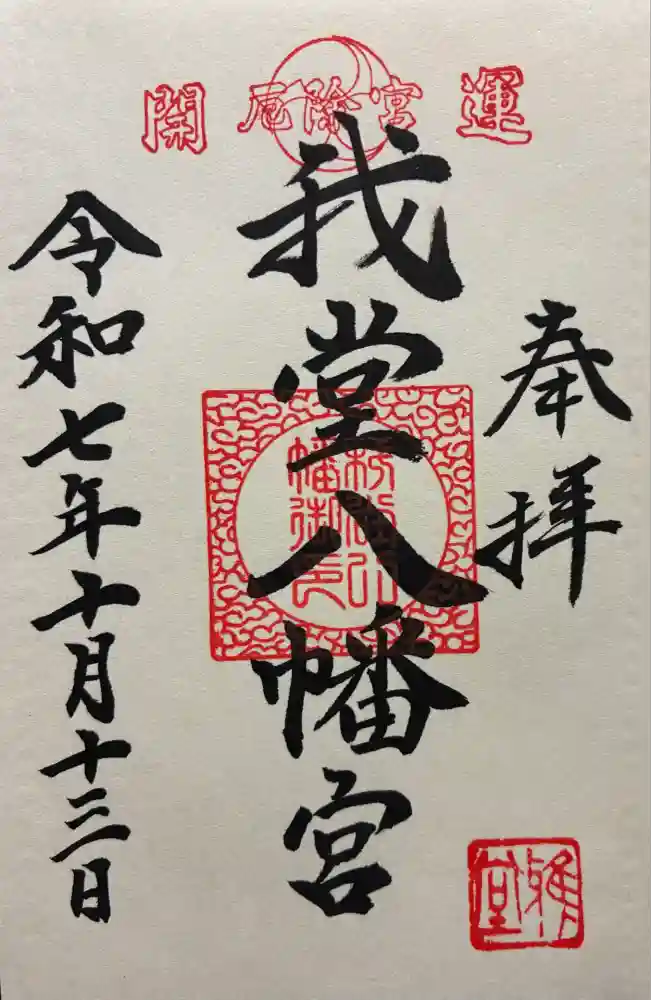 開 厄除宮 運
奉拝
我堂八幡宮
令和七年十月十三日